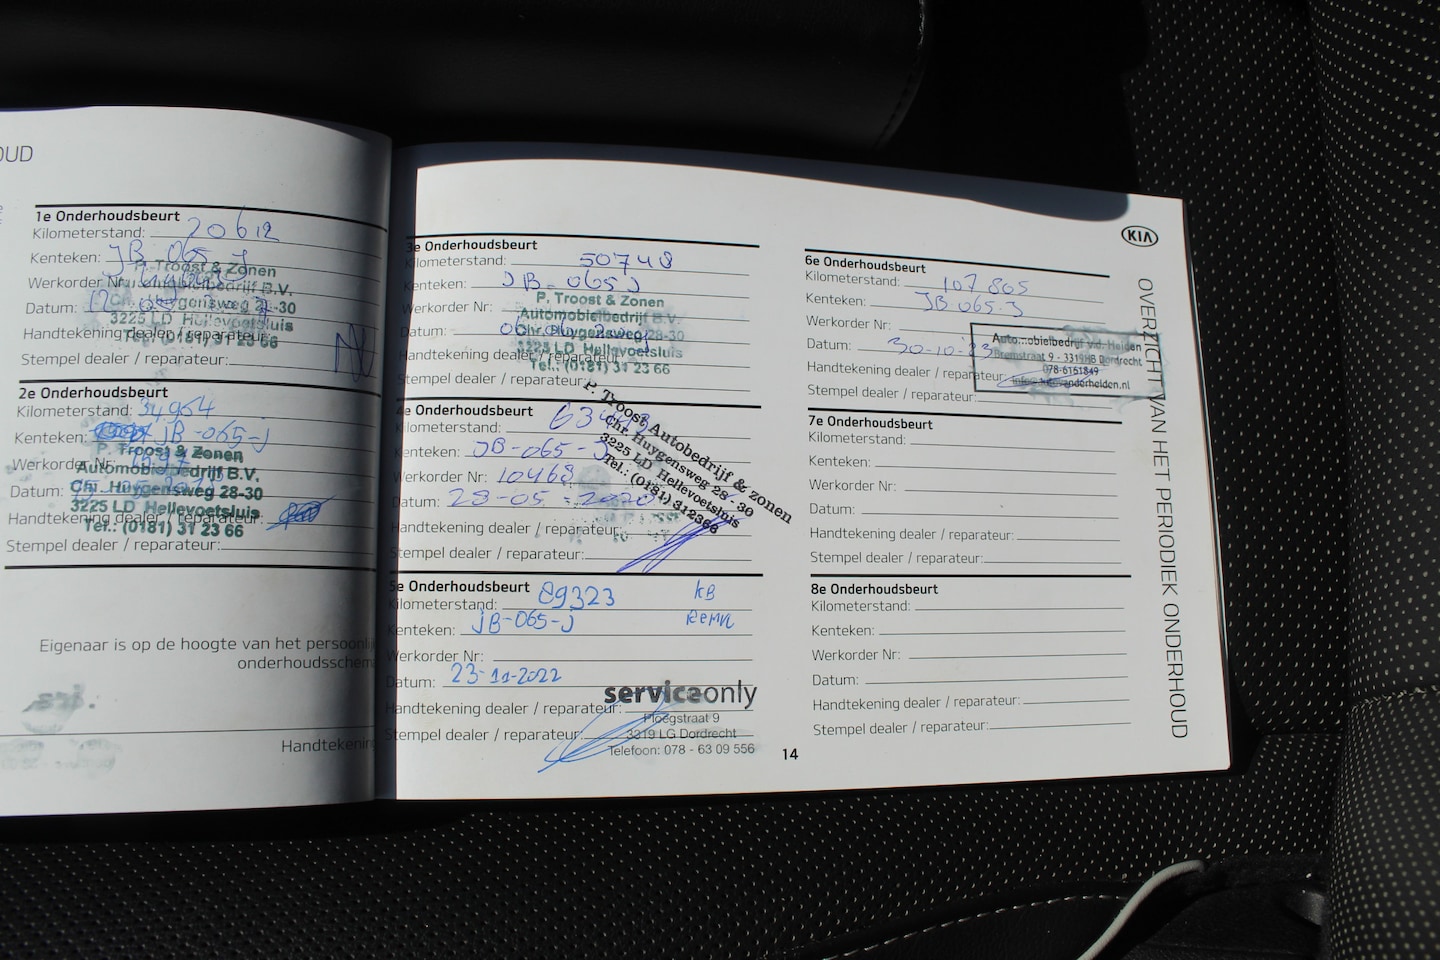 OUD
1e Onderhoudsbeurt
Kilometerstand: 20612
Kenteken: JB-065-J
P. Troost & Zonen
Werkorder Nr:
Automobielbedrijf B.V.
Chr. Huygensweg 28-30
Datum: 12
3225 LD Hellevoetsluis
Handtekening dealer / reparateur:
Tel.: (0181) 31 23 66
Stempel dealer / reparateur:
2e Onderhoudsbeurt
Kilometerstand: 34954
Kenteken: JB-065-J
P. Troost & Zonen
Werkorder Nr:
Automobielbedrijf B.V.
Datum:
Chr. Huygensweg 28-30
3225 LD Hellevoetsluis
Handtekening dealer / reparateur:
Tel.: (0181) 31 23 66
Stempel dealer / reparateur:
Eigenaar is op de hoogte van het
onderhoudsschema
3e Onderhoudsbeurt
Kilometerstand: 50748
Kenteken: JB-065-J
P. Troost & Zonen
Werkorder Nr:
Automobielbedrijf B.V.
Datum:
Chr. Huygensweg 28-30
3225 LD Hellevoetsluis
Handtekening dealer / reparateur:
Tel.: (0181) 31 23 66
Stempel dealer / reparateur:
4e Onderhoudsbeurt
Kilometerstand:
Kenteken: JB-065-J
Werkorder Nr: 10468
Datum: 28-05-2020
P. Troost Autobedrijf & zonen
Chr. Huygensweg 28 - 30
3225 LD Hellevoetsluis
Tel.: (0181) 312366
Handtekening dealer / reparateur:
Stempel dealer / reparateur:
5e Onderhoudsbeurt
Kilometerstand: 89323 KB
Kenteken: JB-065-J
Werkorder Nr:
Datum: 23-11-2022
serviceonly
Handtekening dealer / reparateur:
Ploegstraat 9
Stempel dealer / reparateur:
3219 LG Dordrecht
Telefoon: 078 - 63 09 556
14
KIA
6e Onderhoudsbeurt
Kilometerstand: 107805
Kenteken: JB-065-J
Werkorder Nr:
Datum: 30-10-'23
v.d. Heiden
Bremstraat 9 - 3319HB Dordrecht
078-6161849
Handtekening dealer / reparateur:
Stempel dealer / reparateur:
7e Onderhoudsbeurt
Kilometerstand:
Kenteken:
Werkorder Nr:
Datum:
Handtekening dealer / reparateur:
Stempel dealer / reparateur:
8e Onderhoudsbeurt
Kilometerstand:
Kenteken:
Werkorder Nr:
Datum:
Handtekening dealer / reparateur:
Stempel dealer / reparateur:
OVERZICHT VAN HET PERIODIEK ONDERHOUD